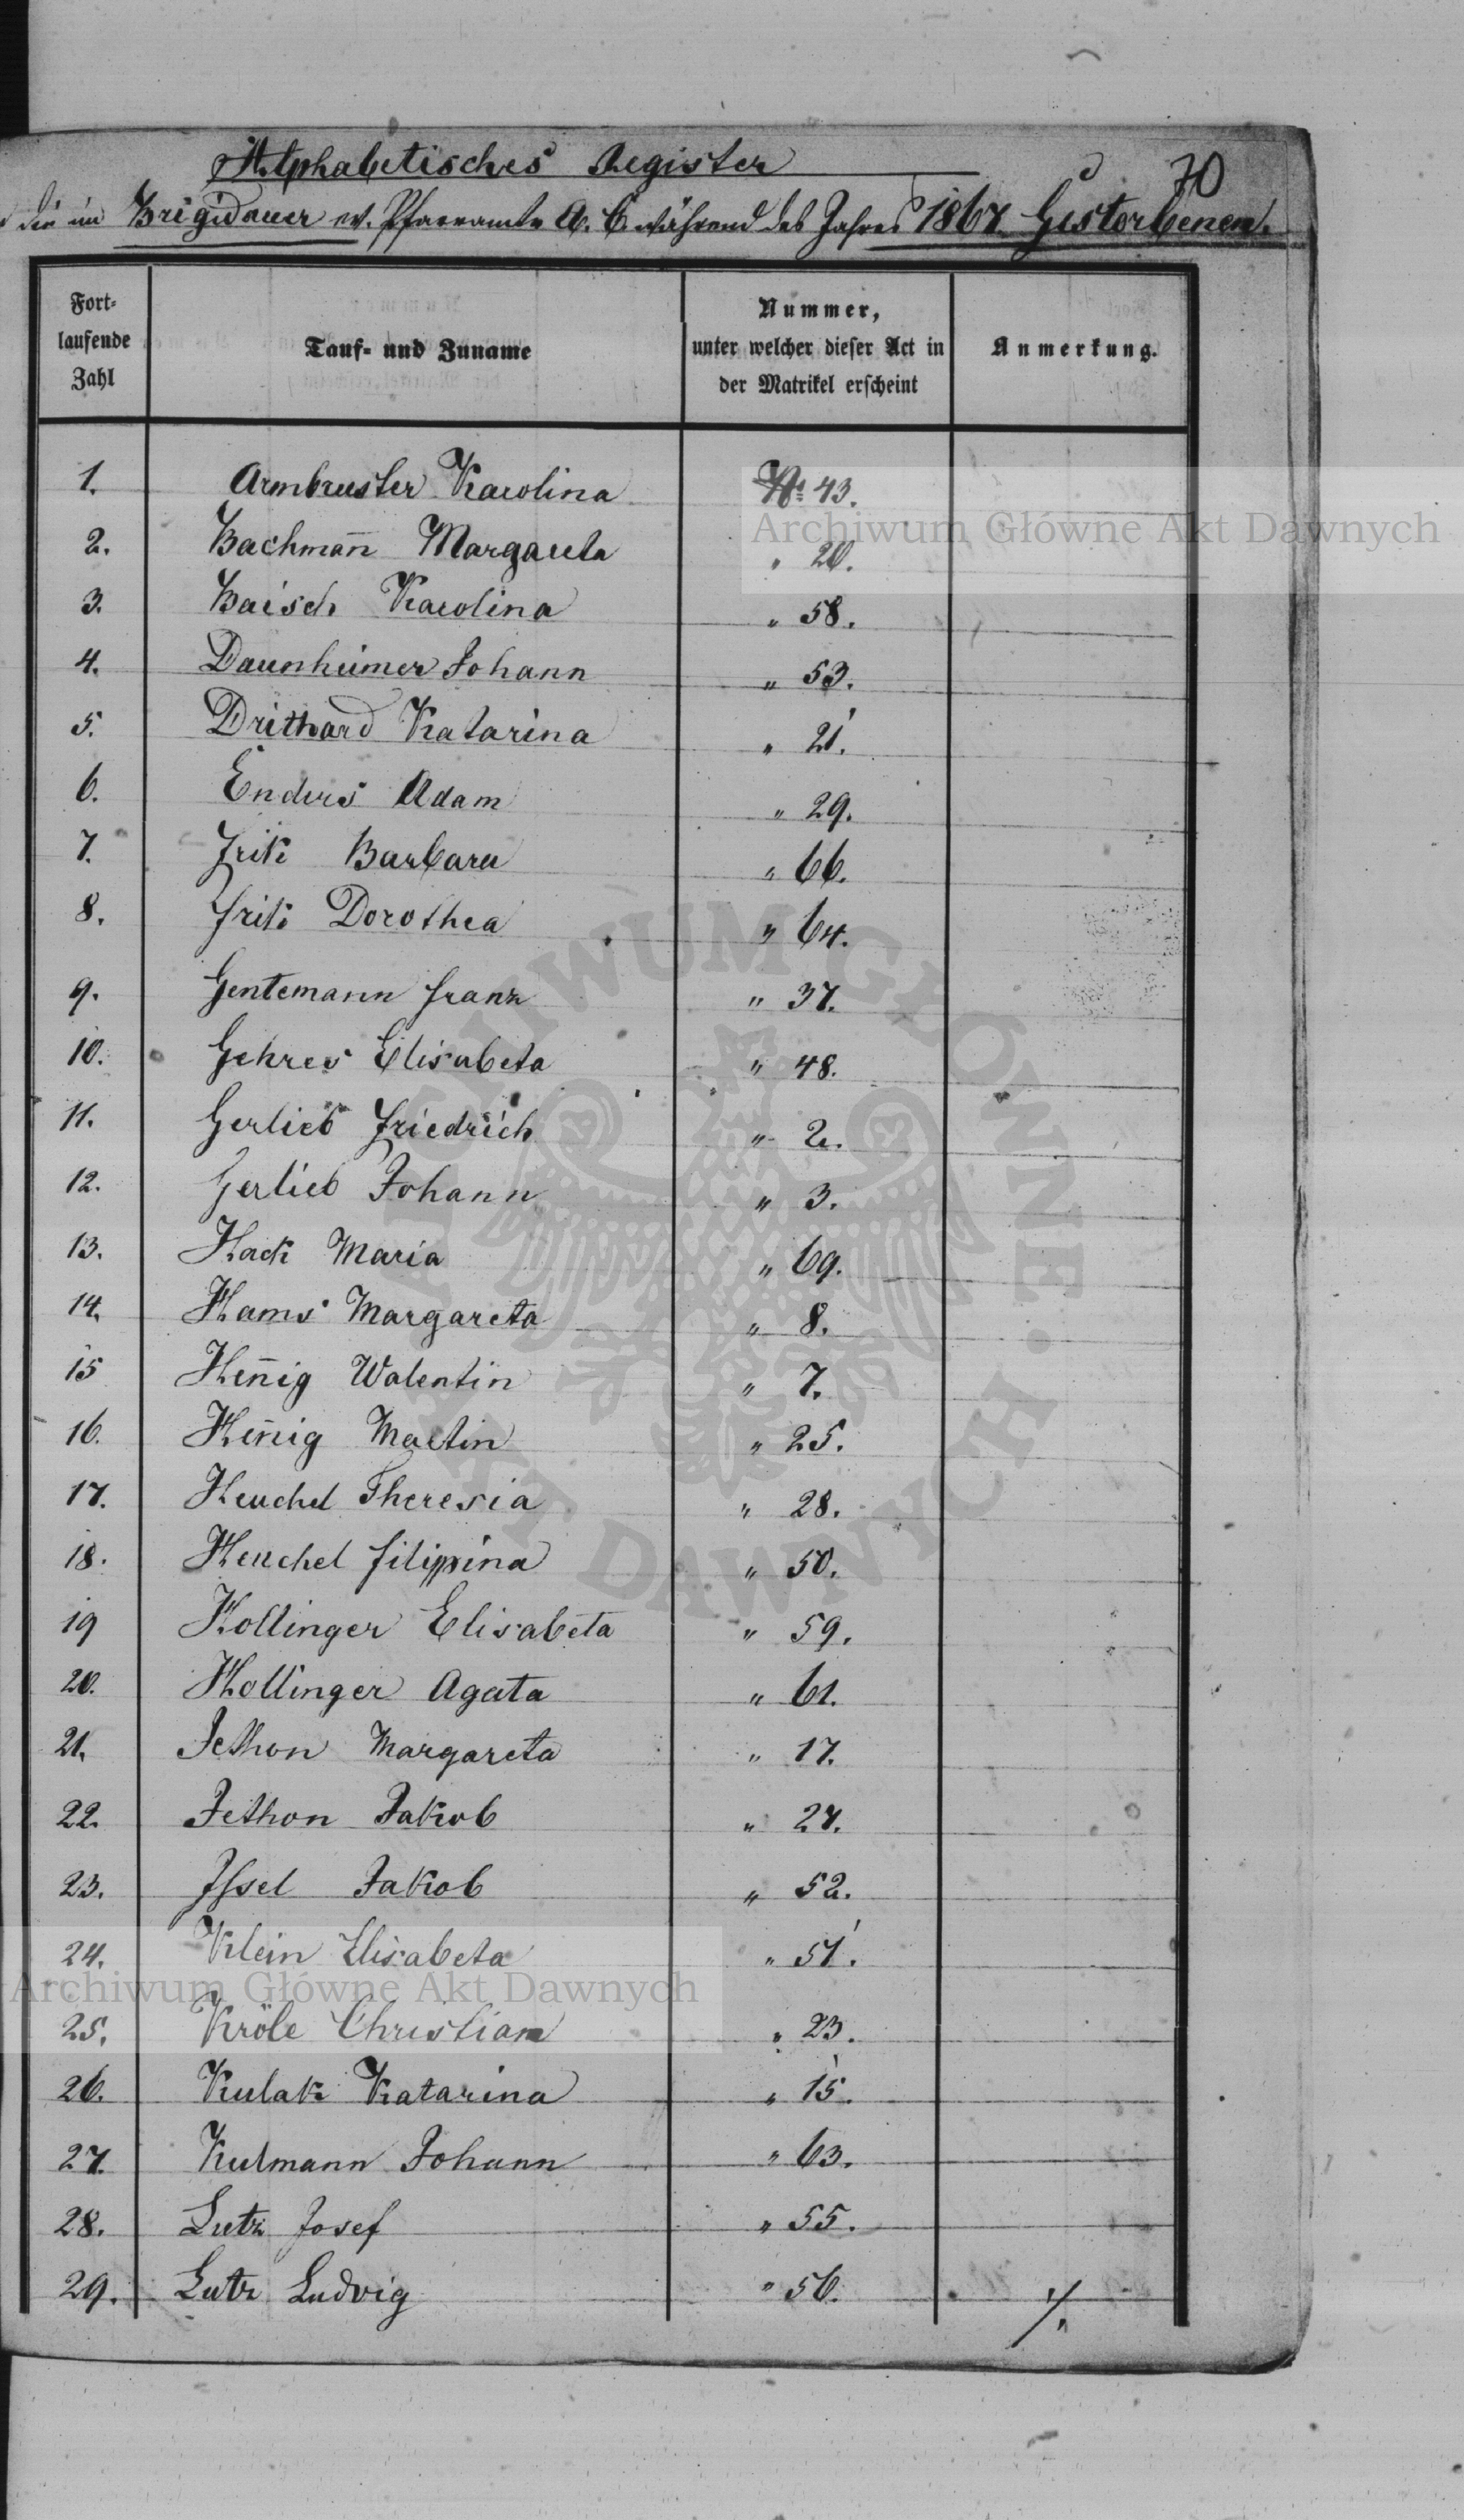 70
Alphabetisches Register
die im Brigidauer ev. Pfarramte A. C. während des Jahres 1867 Gestorbenen.
Fort-
laufende
Zahl
Tauf- und Zuname
Nummer,
unter welcher dieser Act in
der Matrikel erscheint
Anmerkung.
1. Armbruster Karolina No 43.
2. Bachmañ Margareta " 20.
3. Baisch Karolina " 58.
4. Daunheimer Johann " 53.
5. Drithard Katarina " 21.
6. Enders Adam " 29.
7. Frik Barbara " 66.
8. Frik Dorothea " 64.
9. Gentemann Franz " 37.
10. Gehres Elisabeta " 48.
11. Gerlieb Friedrich " 2.
12. Gerlieb Johann " 3.
13. Hack Maria " 69.
14. Hams Margareta " 8.
15 Heñig Walentin " 7.
16. Heñig Martin " 25.
17. Heuchel Theresia " 28.
18. Heuchel Filippina " 50.
19 Hollinger Elisabeta " 59.
20. Hollinger Agata " 61.
21. Jethon Margareta " 17.
22. Jethon Jakob " 27.
23. Issel Jakob " 52.
24. Klein Elisabeta " 51.
25. Kröle Christian " 23.
26. Kulak Katarina " 15.
27. Kulmann Johann " 63.
28. Lutz Josef " 55.
29. Lutz Ludvig " 56. ./.
Archiwum Główne Akt Dawnych
Archiwum Główne Akt Dawnych
ARCHIWUM GŁÓWNE AKT DAWNYCH